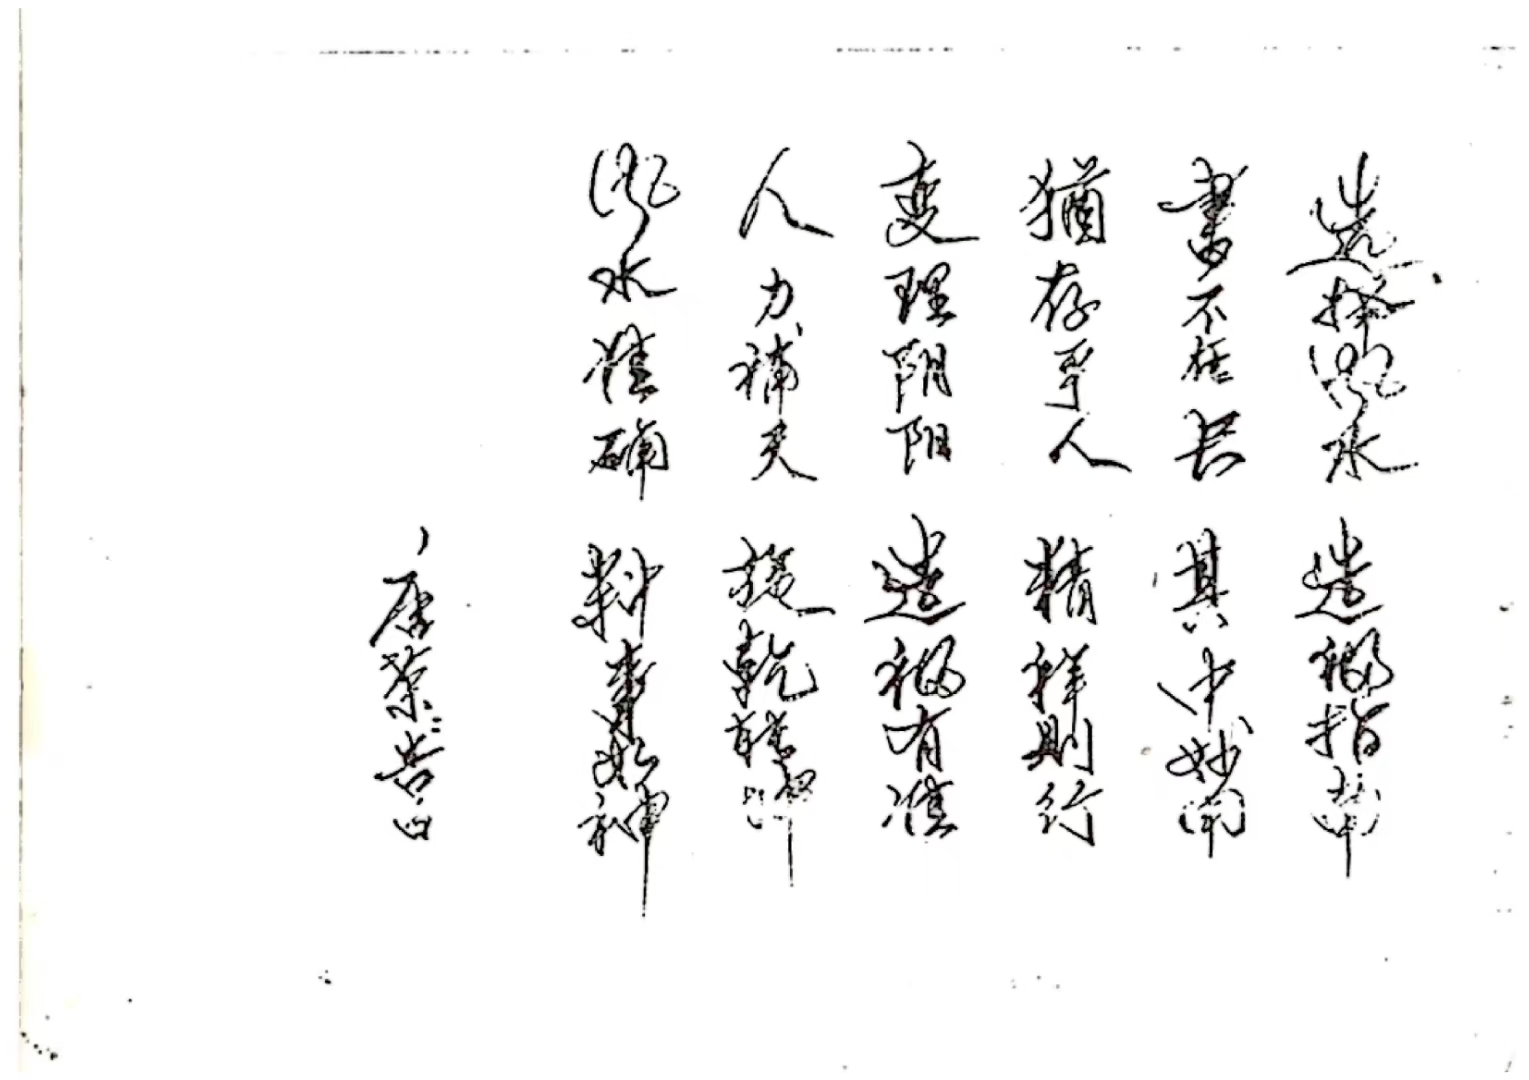 选择风水 造福指南
书不在长 其中妙用
犹存乎人 精祥则行
变理阴阳 造福有准
人力补天 旋乾转坤
风水准确 料事如神
唐荣 告白